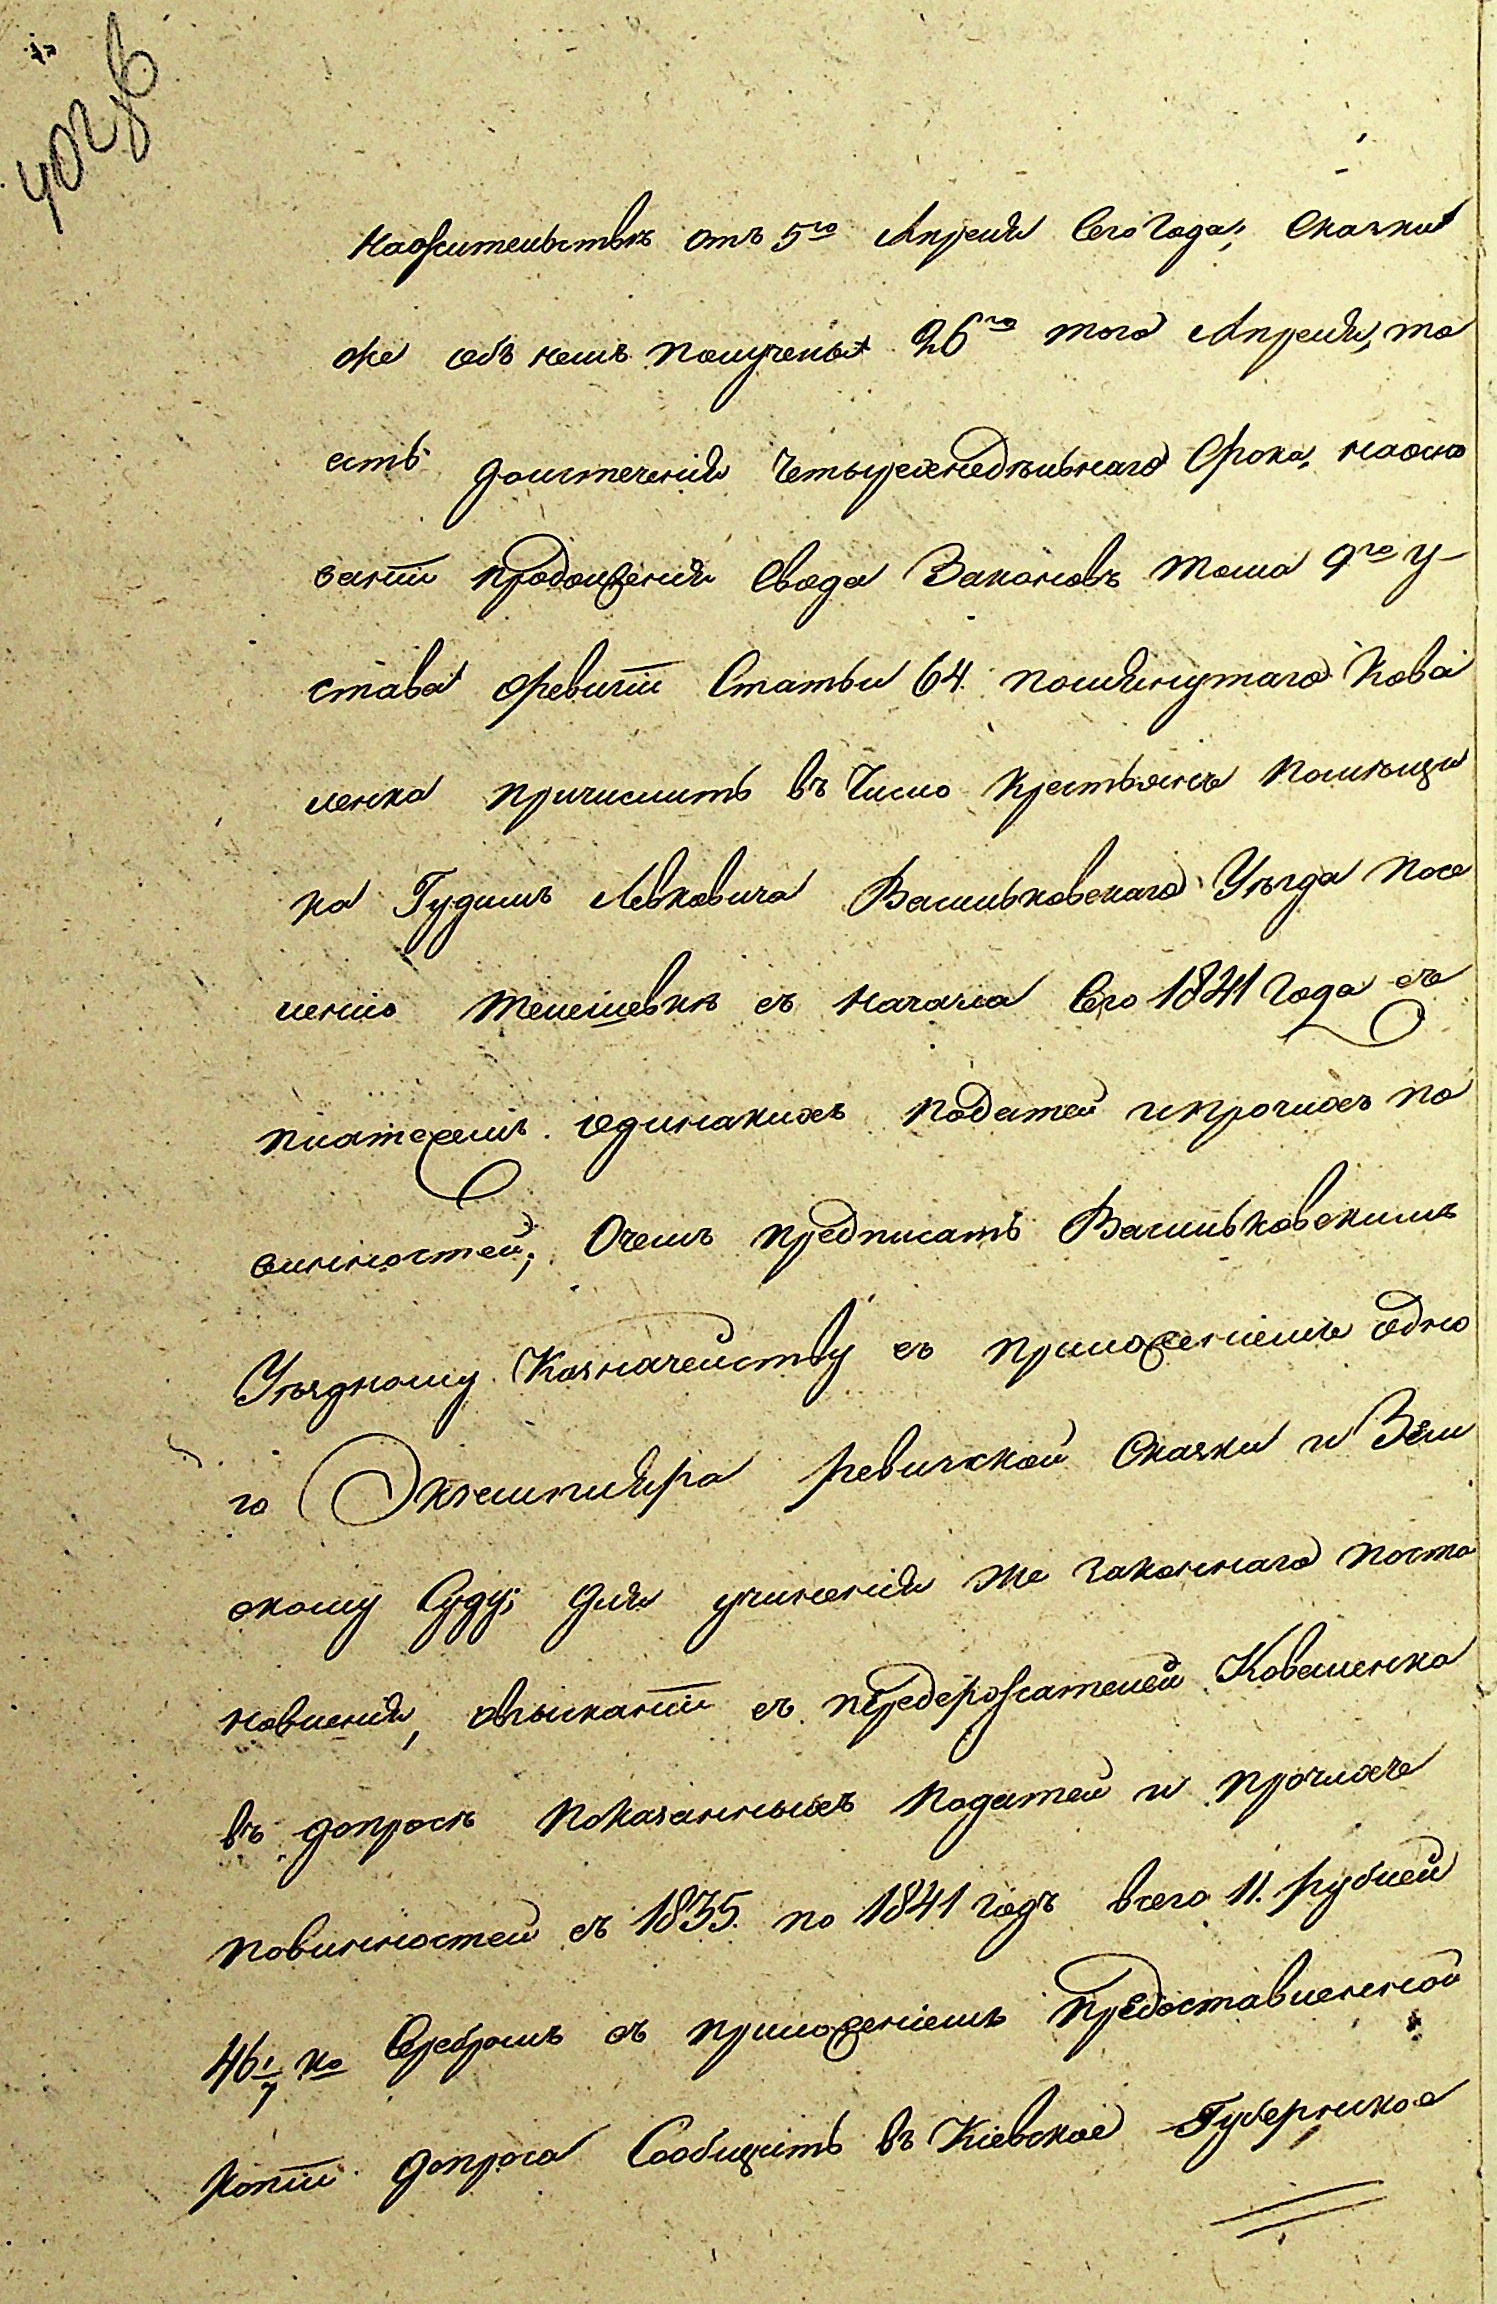 402 об
нажительствѣ отъ 5го Апреля Сего Года; Сказки
же объ немъ получены 26го того Апреля, то
есть доистеченія Четыренедѣльнаго Срока, наосно
ваніи продолженія Свода Законовъ тома 9го у-
става оревизіи Статьи 64. помянутаго Кова
ленка причислить въ Число крестьянъ помѣщи
ка Гудимъ Левковича Васильковскаго Уѣзда посе
ленію Телешевкѣ съ начала Сего 1841 Года съ
платежемъ одинакихъ податей ипрочихъ по
винностей; Очемъ предписать Васильковскимъ
Уѣздному Казначейству съ приложеніемъ одно
го Экземпляра ревизской Сказки и Зем
скому Суду; Для учиненія же законнаго поста
новленія, овзысканіи съ передержателей Коваленка
въ допросѣ показанныхъ податей и прочихъ
повинностей съ 1835. по 1841 годъ всего 11. рублей
46 1/7 ко Серебромъ съ приложеніемъ предоставленной
копіи допроса Сообщить въ Кіевское Губернское